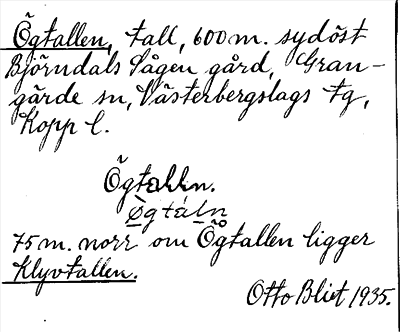 Õgtallen, tall, 600 m. sydöst
Björndals Sågen gård, Gran-
gärde sn, Västerbergslags tg,
Kopp l.
Õgtalln.
Ø̀gtáln
75 m. norr om Õgtallen ligger
Klyvtallen.
Otto Blixt 1935.